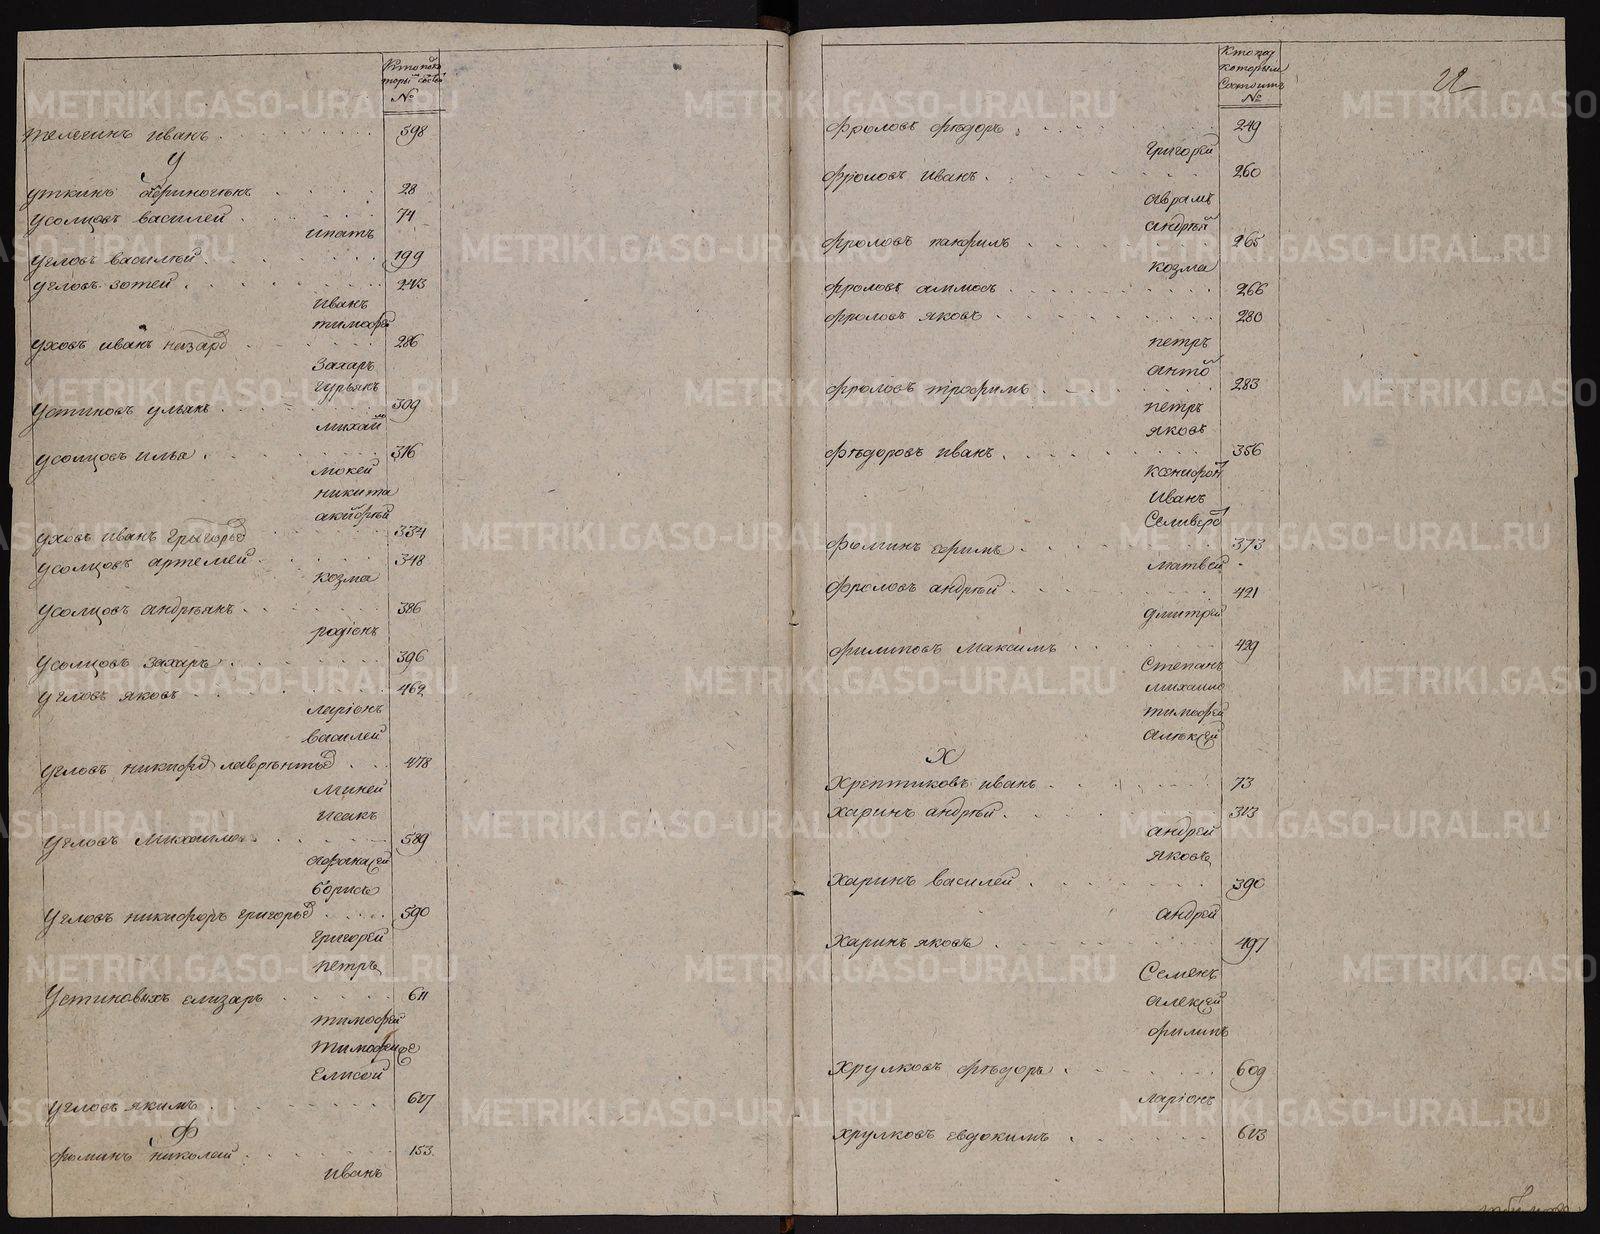 Кто подко
торым состои
№
телегинъ иванъ 598
У
уткинъ 28
усолцовъ василей 74
ипатъ
угловъ василей 199
угловъ зотей 243
иванъ
тимофѣ
уховъ иванъ назаро 286
Захаръ
гурьянъ
устиновъ ульянъ 309
михай
усолцовъ илья 316
мокей
никита
уховъ иванъ григорье 334
усолцовъ артемей 348
козма
усолцовъ андреянъ 386
родіонъ
усолцовъ захаръ 396
угловъ яковъ 462
ларіонъ
василей
угловъ никифо лаврентье 478
миней
исакъ
угловъ михаило 589
афонасей
борисъ
угловъ никифоръ григорье 590
григорей
петръ
устиновыхъ елизаръ 611
тимофей
тимофей
Елисей
угловъ якимъ 617
Ф
фоминъ николай 153
иванъ
Кто под
которым
Состоитъ
№
22
фроловъ фѣдоръ 249
григорей
фроловъ иванъ 260
аврамъ
андрѣй
фроловъ панфилъ 265
козма
фроловъ аммосъ 266
фроловъ яковъ 280
петръ
анто
фроловъ трофимъ 283
петръ
яковъ
фѣдоровъ иванъ 356
ксенофон
Иванъ
Селиверс
фомин ефимъ 373
матвей
фроловъ андрѣй 421
дмитрей
филиповъ Максимъ 429
Степанъ
михаило
тимофей
алексей
Х
хрептиковъ иванъ 73
харинъ андрѣй 313
андрей
яковъ
харинъ василей 390
андрей
харинъ яковъ 497
Семенъ
алексей
филипъ
хрулковъ фѣдоръ 609
ларіонъ
хрулковъ евдокимъ 613
METRIKI.GASO-URAL.RU